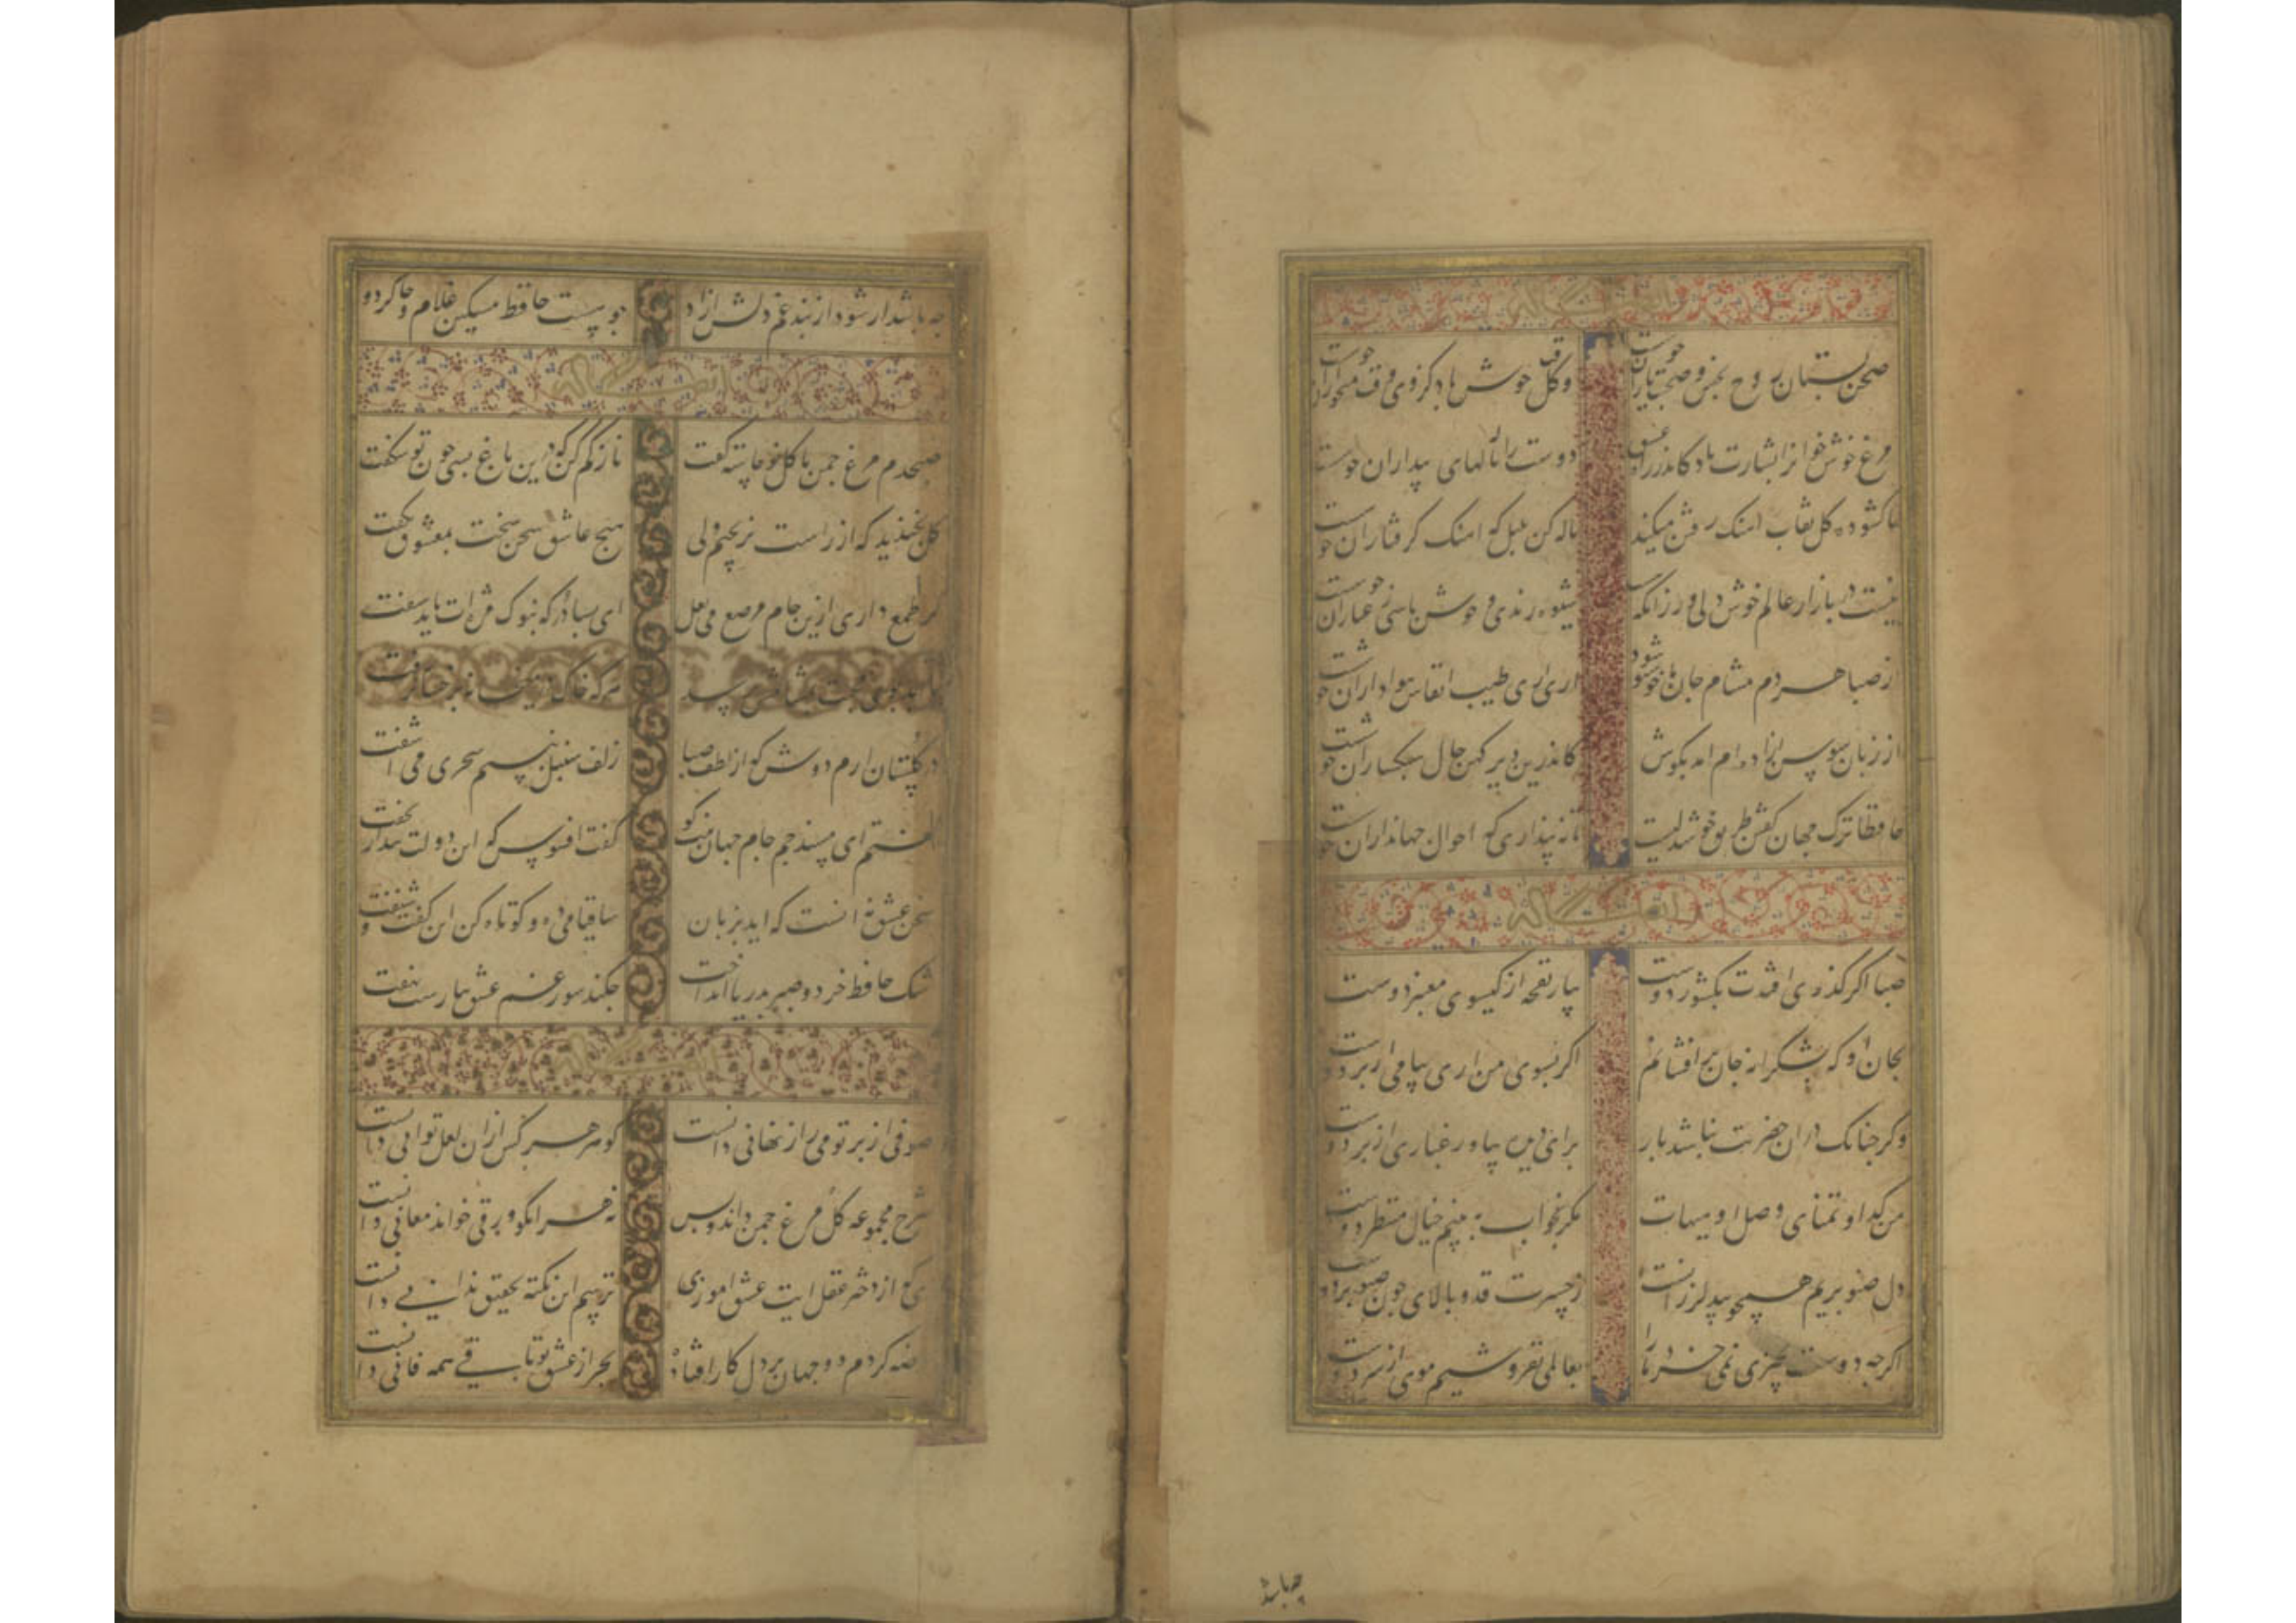 ایضا له
صحن بستان روح بخش و صحبت یاران خوشست
وقت گل خوش باد کزوی وقت میخواران خوشست
مرغ خوش خوانرا بشارت باد کاندر راه عشق
دوست را نالهای بیداران خوشست
نا کشوده کل نقاب اهنک رفتن میکند
ناله کن بلبل که اهنک کرفتاران خوشست
نیست در بازار عالم خوش دلی ور زانکه
شیوه رندی و خوش باشی عیاران خوشست
از صبا هردم مشام جان ما خوش شود
اری اری طیب انفاس هواداران خوشست
از زبان سوسن ازاده ام امد بکوش
کاندرین دیر کهن حال سبکساران خوشست
حافظا ترک جهان کفتن طریق خوشدلیست
تا نه پنداری که احوال جهانداران خوشست
ایضا له
صبا اکر کذری افتدت بکشور دوست
بیار نفحه از کیسوی معنبر دوست
بجان او که بشکرانه جان بر افشانم
اکر بسوی من اری پیامی از بر دوست
وکر چنانک دران حضرتت نباشد بار
برای دیده بیاور غباری از بر دوست
من کدا و تمنای وصل او هیهات
مکر بخواب به بینم خیال منظر دوست
دل صنوبریم همچو بید لرزانست
ز حسرت قد و بالای چون صنوبر دوست
اکرچه دوست بچیزی نمی خرد ما را
بعالمی نفروشیم موی از سر دوست
چه باشد
چه باشد ار شود از بند غم دلش ازاد
چو هست حافظ مسکین غلام و چاکر دوست
ایضا له
صبحدم مرغ چمن با کل نو خاسته کفت
ناز کم کن که درین باغ بسی چون تو شکفت
کل بخندید که از راست نرنجیم ولی
هیچ عاشق سخن سخت بمعشوق نکفت
کر طمع داری ازین جام مرصع می لعل
ای بسا در که بنوک مژه ات باید سفت
تا ابد بوی محبت بمشامش نرسد
هرکه خاک در میخانه برخساره نرفت
در کلستان ارم دوش که از لطف صبا
زلف سنبل به نسیم سحری می اشفت
کفتم ای مسند جم جام جهان بینت کو
کفت افسوس که این دولت بیدار بخفت
سخن عشق نه انست که اید بزبان
ساقیا می ده و کوتاه کن این کفت و شنفت
اشک حافظ خرد و صبر بدریا انداخت
چکند سوز غم عشق نیارست نهفت
ایضا له
صوفی از پرتو می راز نهانی دانست
کوهر هرکس ازان لعل توانی دانست
شرح مجموعه کل مرغ چمن داند و بس
نه هر انکو ورقی خواند معانی دانست
ای که از دفتر عقل ایت عشق اموزی
ترسم این نکته بتحقیق ندانی دانست
عرضه کردم دو جهان بر دل کار افتاده
بجز از عشق تو باقی همه فانی دانست